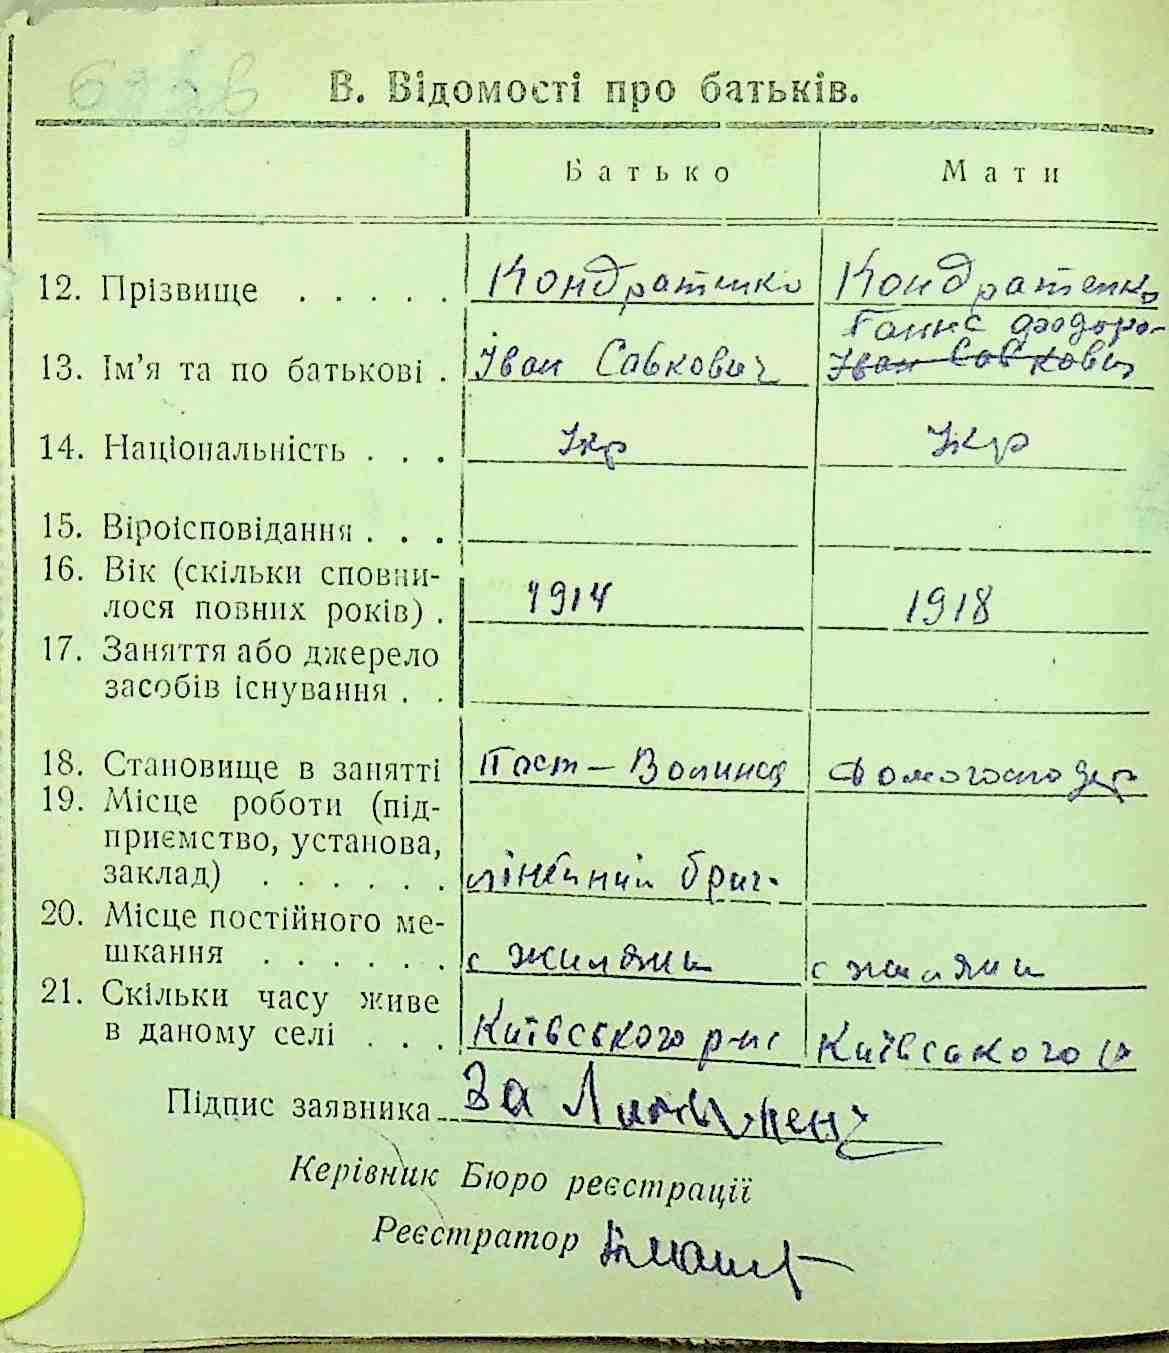 В. Відомості про батьків.
Батько Мати
12. Прізвище . . . . . Кондратенко Кондратенко
Ганна Федоро-
13. Ім'я та по батькові . Іван Савкович Іван Савкович
14. Національність . . . Укр Укр
15. Віроісповідання . . .
16. Вік (скільки сповни-
лося повних років) . 1914 1918
17. Заняття або джерело
засобів існування . .
18. Становище в занятті Пост-Волинськ домогосподар
19. Місце роботи (під-
приємство, установа,
заклад) . . . . . . лінейний бриг.
20. Місце постійного ме-
шкання . . . . . . с Жиляни с Жиляни
21. Скільки часу живе
в даному селі . . . Київського р-н Київського
Підпис заявника За
Керівник Бюро реєстрації
Реєстратор